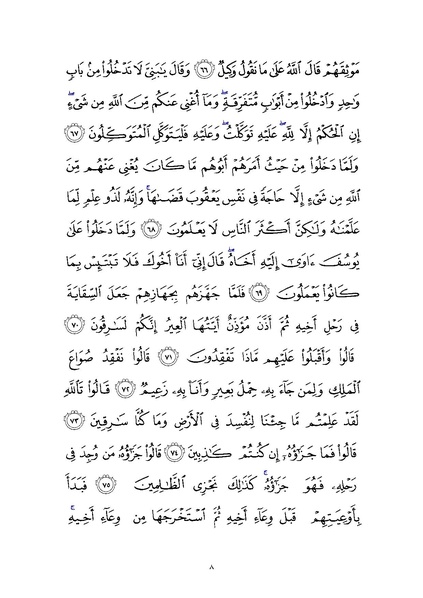 مَوْثِقَهُمْ قَالَ ٱللَّهُ عَلَىٰ مَا نَقُولُ وَكِيلٌ ۝٦٦ وَقَالَ يَٰبَنِىَّ لَا تَدْخُلُوا۟ مِنۢ بَابٍ
وَٰحِدٍ وَٱدْخُلُوا۟ مِنْ أَبْوَٰبٍ مُّتَفَرِّقَةٍ ۖ وَمَآ أُغْنِى عَنكُم مِّنَ ٱللَّهِ مِن شَىْءٍ ۖ
إِنِ ٱلْحُكْمُ إِلَّا لِلَّهِ ۖ عَلَيْهِ تَوَكَّلْتُ ۖ وَعَلَيْهِ فَلْيَتَوَكَّلِ ٱلْمُتَوَكِّلُونَ ۝٦٧
وَلَمَّا دَخَلُوا۟ مِنْ حَيْثُ أَمَرَهُمْ أَبُوهُم مَّا كَانَ يُغْنِى عَنْهُم مِّنَ
ٱللَّهِ مِن شَىْءٍ إِلَّا حَاجَةً فِى نَفْسِ يَعْقُوبَ قَضَىٰهَا ۚ وَإِنَّهُۥ لَذُو عِلْمٍ لِّمَا
عَلَّمْنَٰهُ وَلَٰكِنَّ أَكْثَرَ ٱلنَّاسِ لَا يَعْلَمُونَ ۝٦٨ وَلَمَّا دَخَلُوا۟ عَلَىٰ
يُوسُفَ ءَاوَىٰٓ إِلَيْهِ أَخَاهُ ۖ قَالَ إِنِّىٓ أَنَا۠ أَخُوكَ فَلَا تَبْتَئِسْ بِمَا
كَانُوا۟ يَعْمَلُونَ ۝٦٩ فَلَمَّا جَهَّزَهُم بِجَهَازِهِمْ جَعَلَ ٱلسِّقَايَةَ
فِى رَحْلِ أَخِيهِ ثُمَّ أَذَّنَ مُؤَذِّنٌ أَيَّتُهَا ٱلْعِيرُ إِنَّكُمْ لَسَٰرِقُونَ ۝٧٠
قَالُوا۟ وَأَقْبَلُوا۟ عَلَيْهِم مَّاذَا تَفْقِدُونَ ۝٧١ قَالُوا۟ نَفْقِدُ صُوَاعَ
ٱلْمَلِكِ وَلِمَن جَآءَ بِهِۦ حِمْلُ بَعِيرٍ وَأَنَا۠ بِهِۦ زَعِيمٌ ۝٧٢ قَالُوا۟ تَٱللَّهِ
لَقَدْ عَلِمْتُم مَّا جِئْنَا لِنُفْسِدَ فِى ٱلْأَرْضِ وَمَا كُنَّا سَٰرِقِينَ ۝٧٣
قَالُوا۟ فَمَا جَزَٰٓؤُهُۥٓ إِن كُنتُمْ كَٰذِبِينَ ۝٧٤ قَالُوا۟ جَزَٰٓؤُهُۥ مَن وُجِدَ فِى
رَحْلِهِۦ فَهُوَ جَزَٰٓؤُهُۥ ۚ كَذَٰلِكَ نَجْزِى ٱلظَّٰلِمِينَ ۝٧٥ فَبَدَأَ
بِأَوْعِيَتِهِمْ قَبْلَ وِعَآءِ أَخِيهِ ثُمَّ ٱسْتَخْرَجَهَا مِن وِعَآءِ أَخِيهِ ۚ
٨